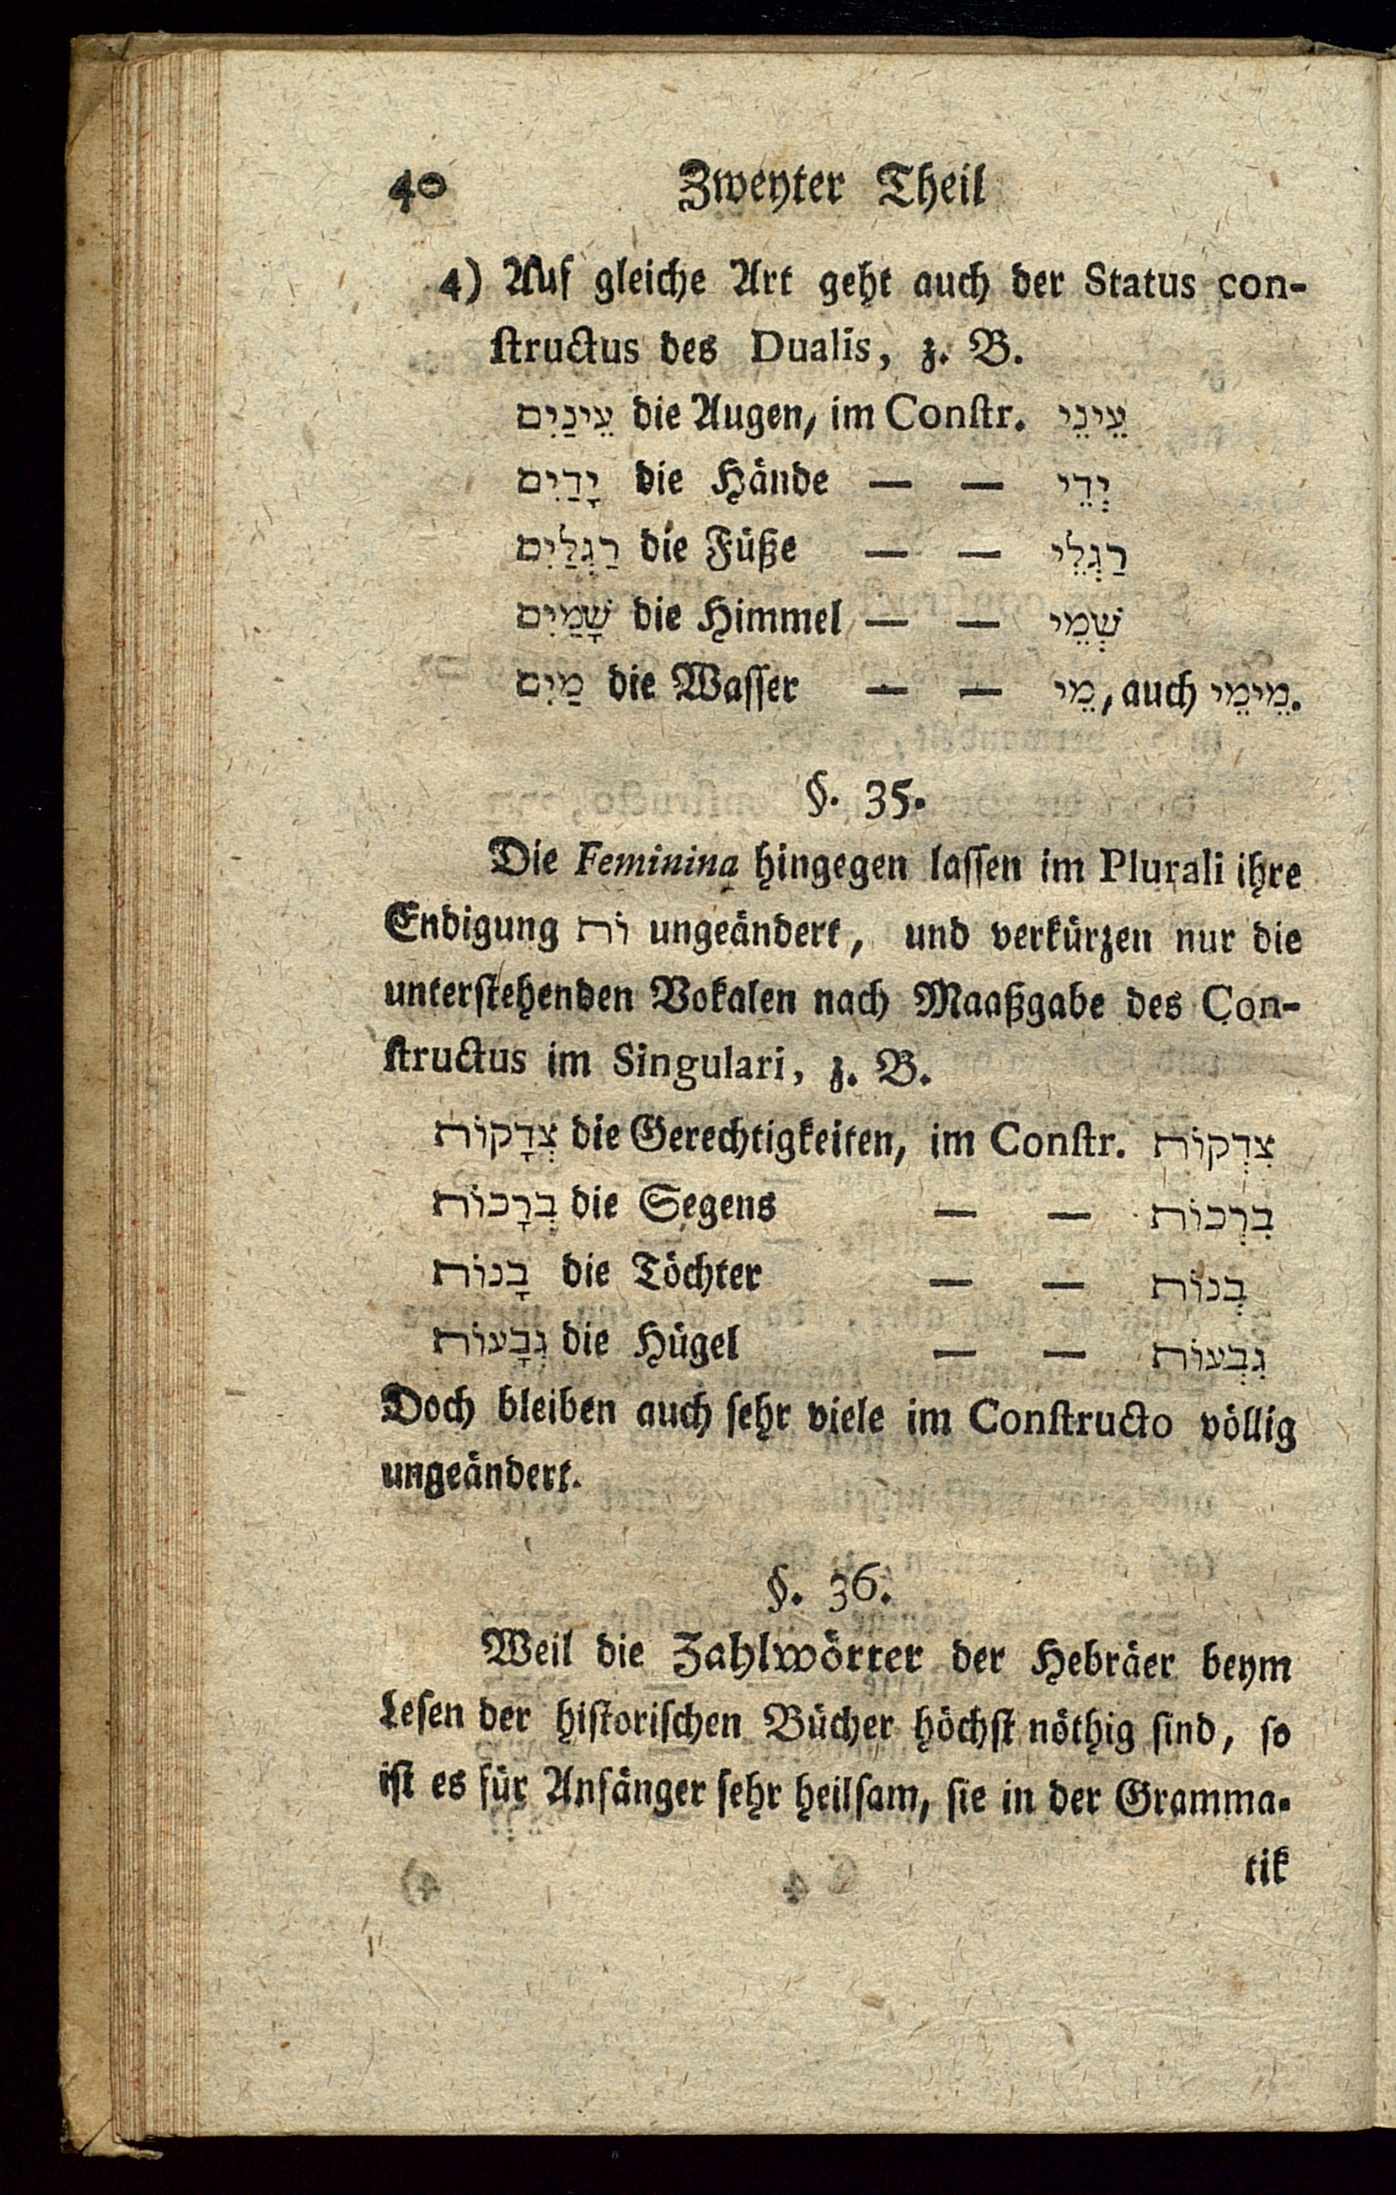 40 Zweyter Theil
4) Auf gleiche Art geht auch der Status con-
structus des Dualis, z. B.
עֵינַיִם die Augen, im Constr. עֵינֵי
יָדַיִם die Hände — — יְדֵי
רַגְלַיִם die Füße — — רַגְלֵי
שָׁמַיִם die Himmel — — שְׁמֵי
מַיִם die Wasser — — מֵי, auch מֵימֵי.
§. 35.
Die Feminina hingegen lassen im Plurali ihre
Endigung וֹת ungeändert, und verkürzen nur die
unterstehenden Vokalen nach Maaßgabe des Con-
structus im Singulari, z. B.
צְדָקוֹת die Gerechtigkeiten, im Constr. צִדְקוֹת
בְּרָכוֹת die Segens — — בִּרְכוֹת
בָּנוֹת die Töchter — — בְּנוֹת
גְּבָעוֹת die Hügel — — גִּבְעוֹת
Doch bleiben auch sehr viele im Constructo völlig
ungeändert.
§. 36.
Weil die Zahlwörter der Hebräer beym
Lesen der historischen Bücher höchst nöthig sind, so
ist es für Anfänger sehr heilsam, sie in der Gramma-
tik